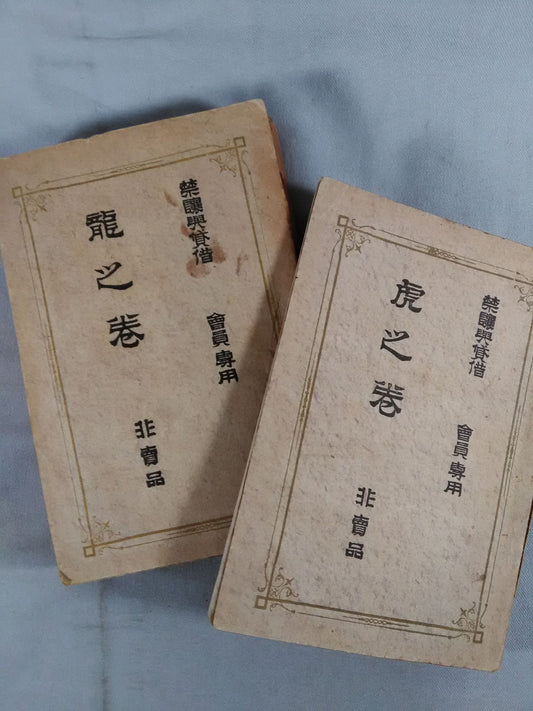 禁讓與貸借
會員専用
龍之巻
非賣品
禁讓與貸借
會員専用
虎之巻
非賣品